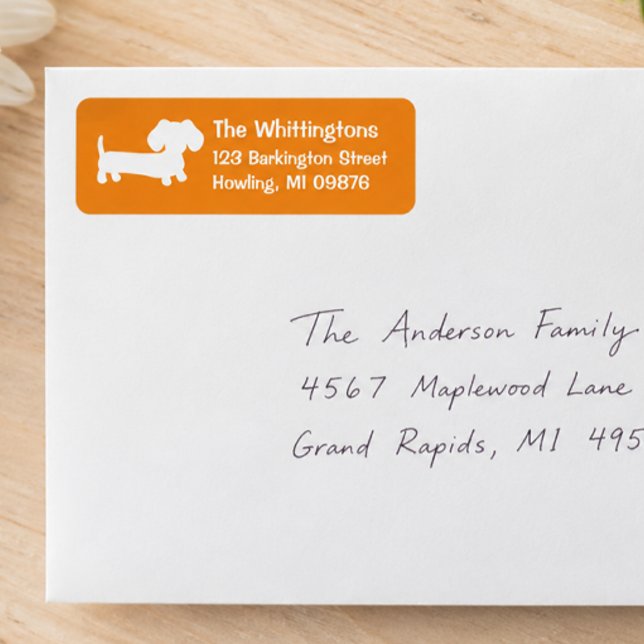 The Whittingtons
123 Barkington Street
Howling, MI 09876
The Anderson Family
4567 Maplewood Lane
Grand Rapids, MI 495